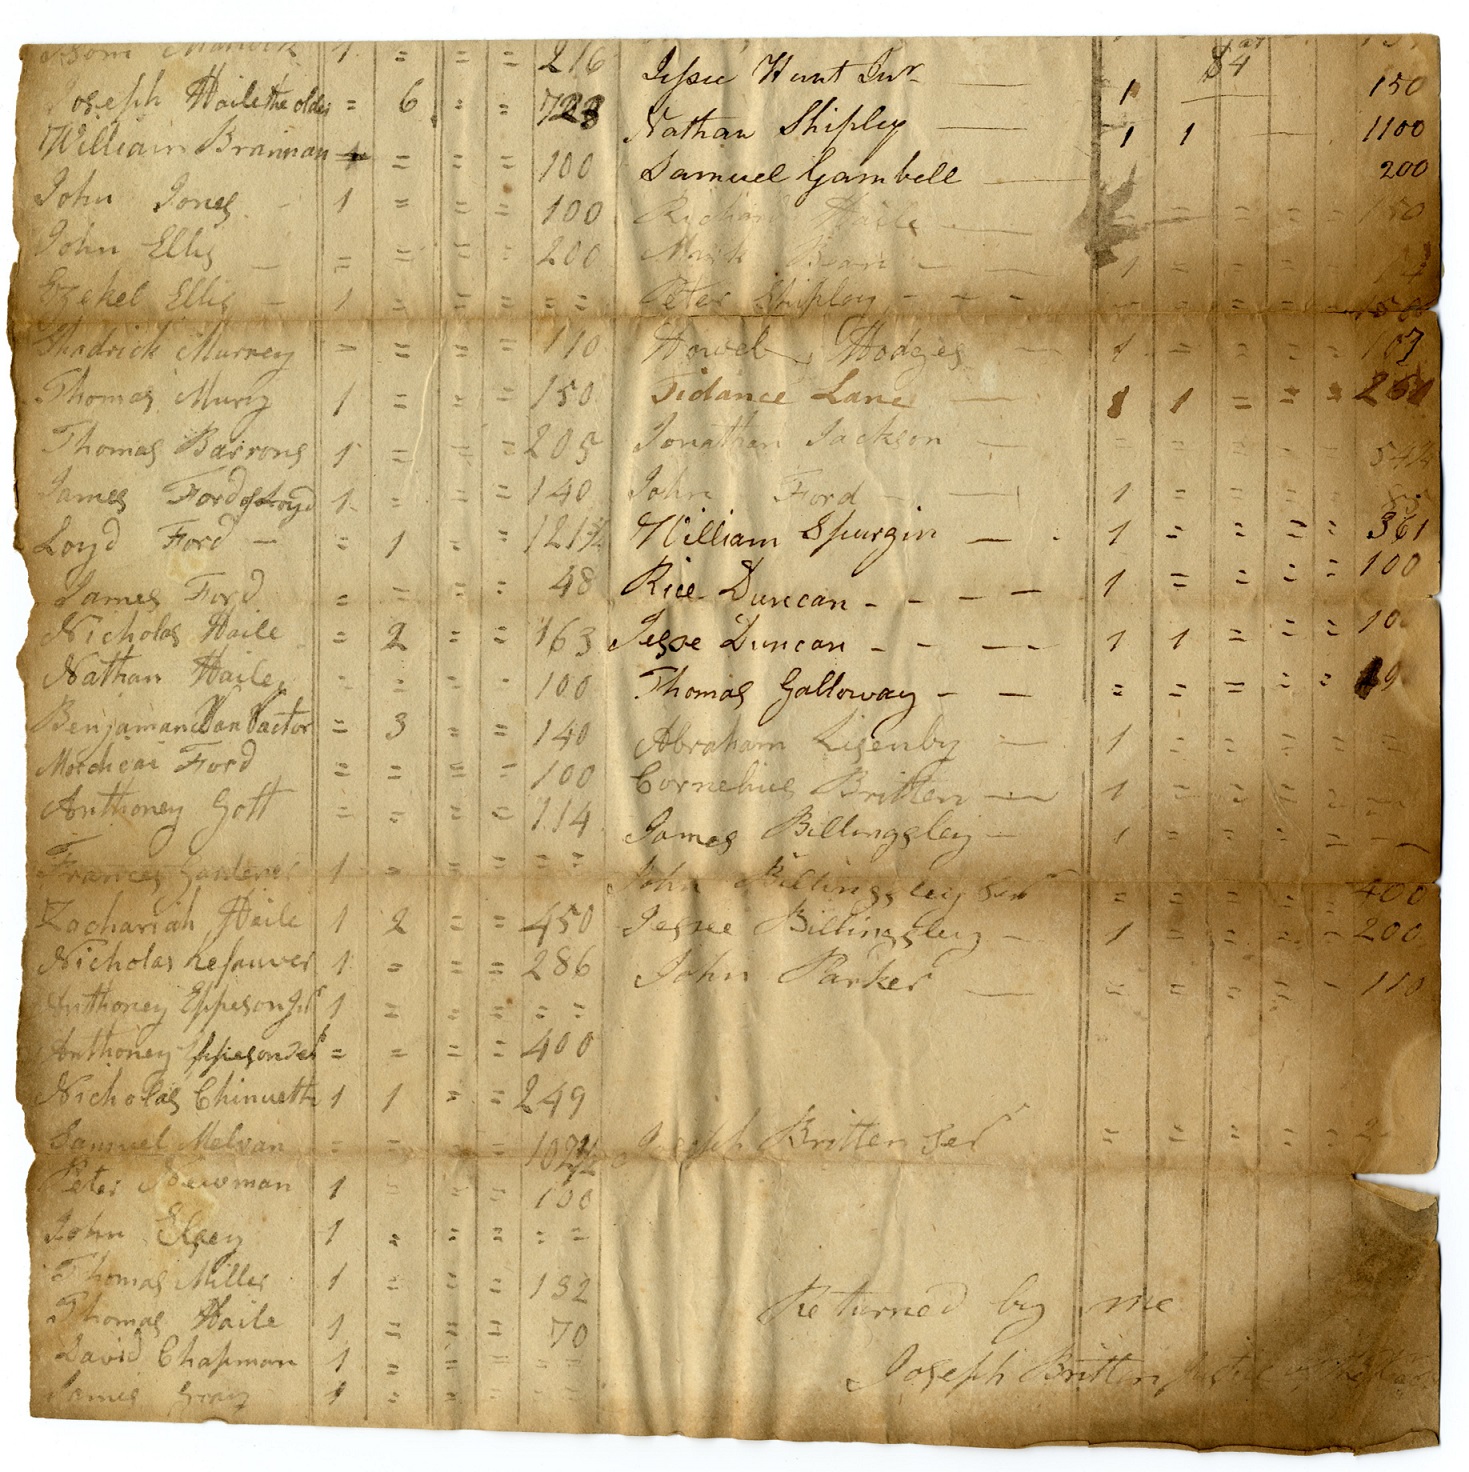 216
Joseph Haile the older = 6 = = 728
William Brannan = = = 100
John Jones - 1 = = = 100
John Ellis - = = = = 200
Ezekel Ellis - 1 = = = = =
Shadrick Murrey = = = = 110
Thomas Murry 1 = = = 150
Thomas Barrons 1 = = = 205
James Ford of Loyd 1 = = = 140
Loyd Ford - = 1 = = 121½
James Ford = = = = 48
Nicholas Haile = 2 = = 163
Nathan Haile = = = = 100
Benjaman Van Factor = 3 = = 140
Mordicai Ford = = = = 100
Anthoney Gott = = = = 114
Frances Gardener 1 = = = = =
Zachariah Haile 1 2 = = 450
Nicholas Lesauver 1 = = = 286
Anthoney Eppeson Jr 1 = = = = =
Anthoney Eppeson Ser = = = = 400
Nicholas Chinueth 1 1 = = 249
Samuel Melvan = = = = 102½
Peter Newman 1 = = = 100
John Elsey 1 = = = = =
Thomas Miller 1 = = = 132
Thomas Haile 1 = = = 70
David Chapman 1 = = = = =
James Gray 1 = = = = =
Jessee Hunt Junr — 1 — 150
Nathan Shipley — 1 1 — 1100
Samuel Gambell — 200
Richard Haile — = = = = = 150
Mark Bean - — 1 = = = =
Peter Shipley - - - = = = =
Howel Hodges — 1 = = = = 107
Tidance Lane — 1 1 = = = 261
Jonathan Jackson — = = = = =
John Ford — 1 = = = =
William Spurgin — - 1 = = = = 361
Rice Duncan - - - — 1 = = = = 100
Jesse Duncan - - — — 1 1 = = =
Thomas Galloway - — = = = = =
Abraham Lisenby — 1 = = = = =
Cornelius Britten — 1 = = = = —
James Billingsley — 1 = = = = —
John Billingsley Ser = = = = = 400
Jesse Billingsley — 1 = = = = 200
John Parker — = = = = = 110
Joseph Britten Ser = = = = =
Returned by me
Joseph Britten